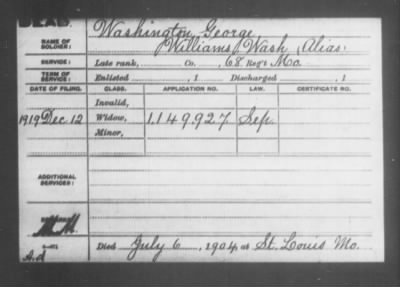 DEAD.
NAME OF SOLDIER: Washington, George
Williams, Wash (Alias)
SERVICE: Late rank, Co. , 68 Reg't Mo.
TERM OF SERVICE: Enlisted , 1 Discharged , 1
DATE OF FILING. CLASS. APPLICATION NO. LAW. CERTIFICATE NO.
Invalid,
1919 Dec 12 Widow, 1,149.927. Sep.
Minor,
ADDITIONAL SERVICES:
Died July 6, 1904, at St. Louis Mo.